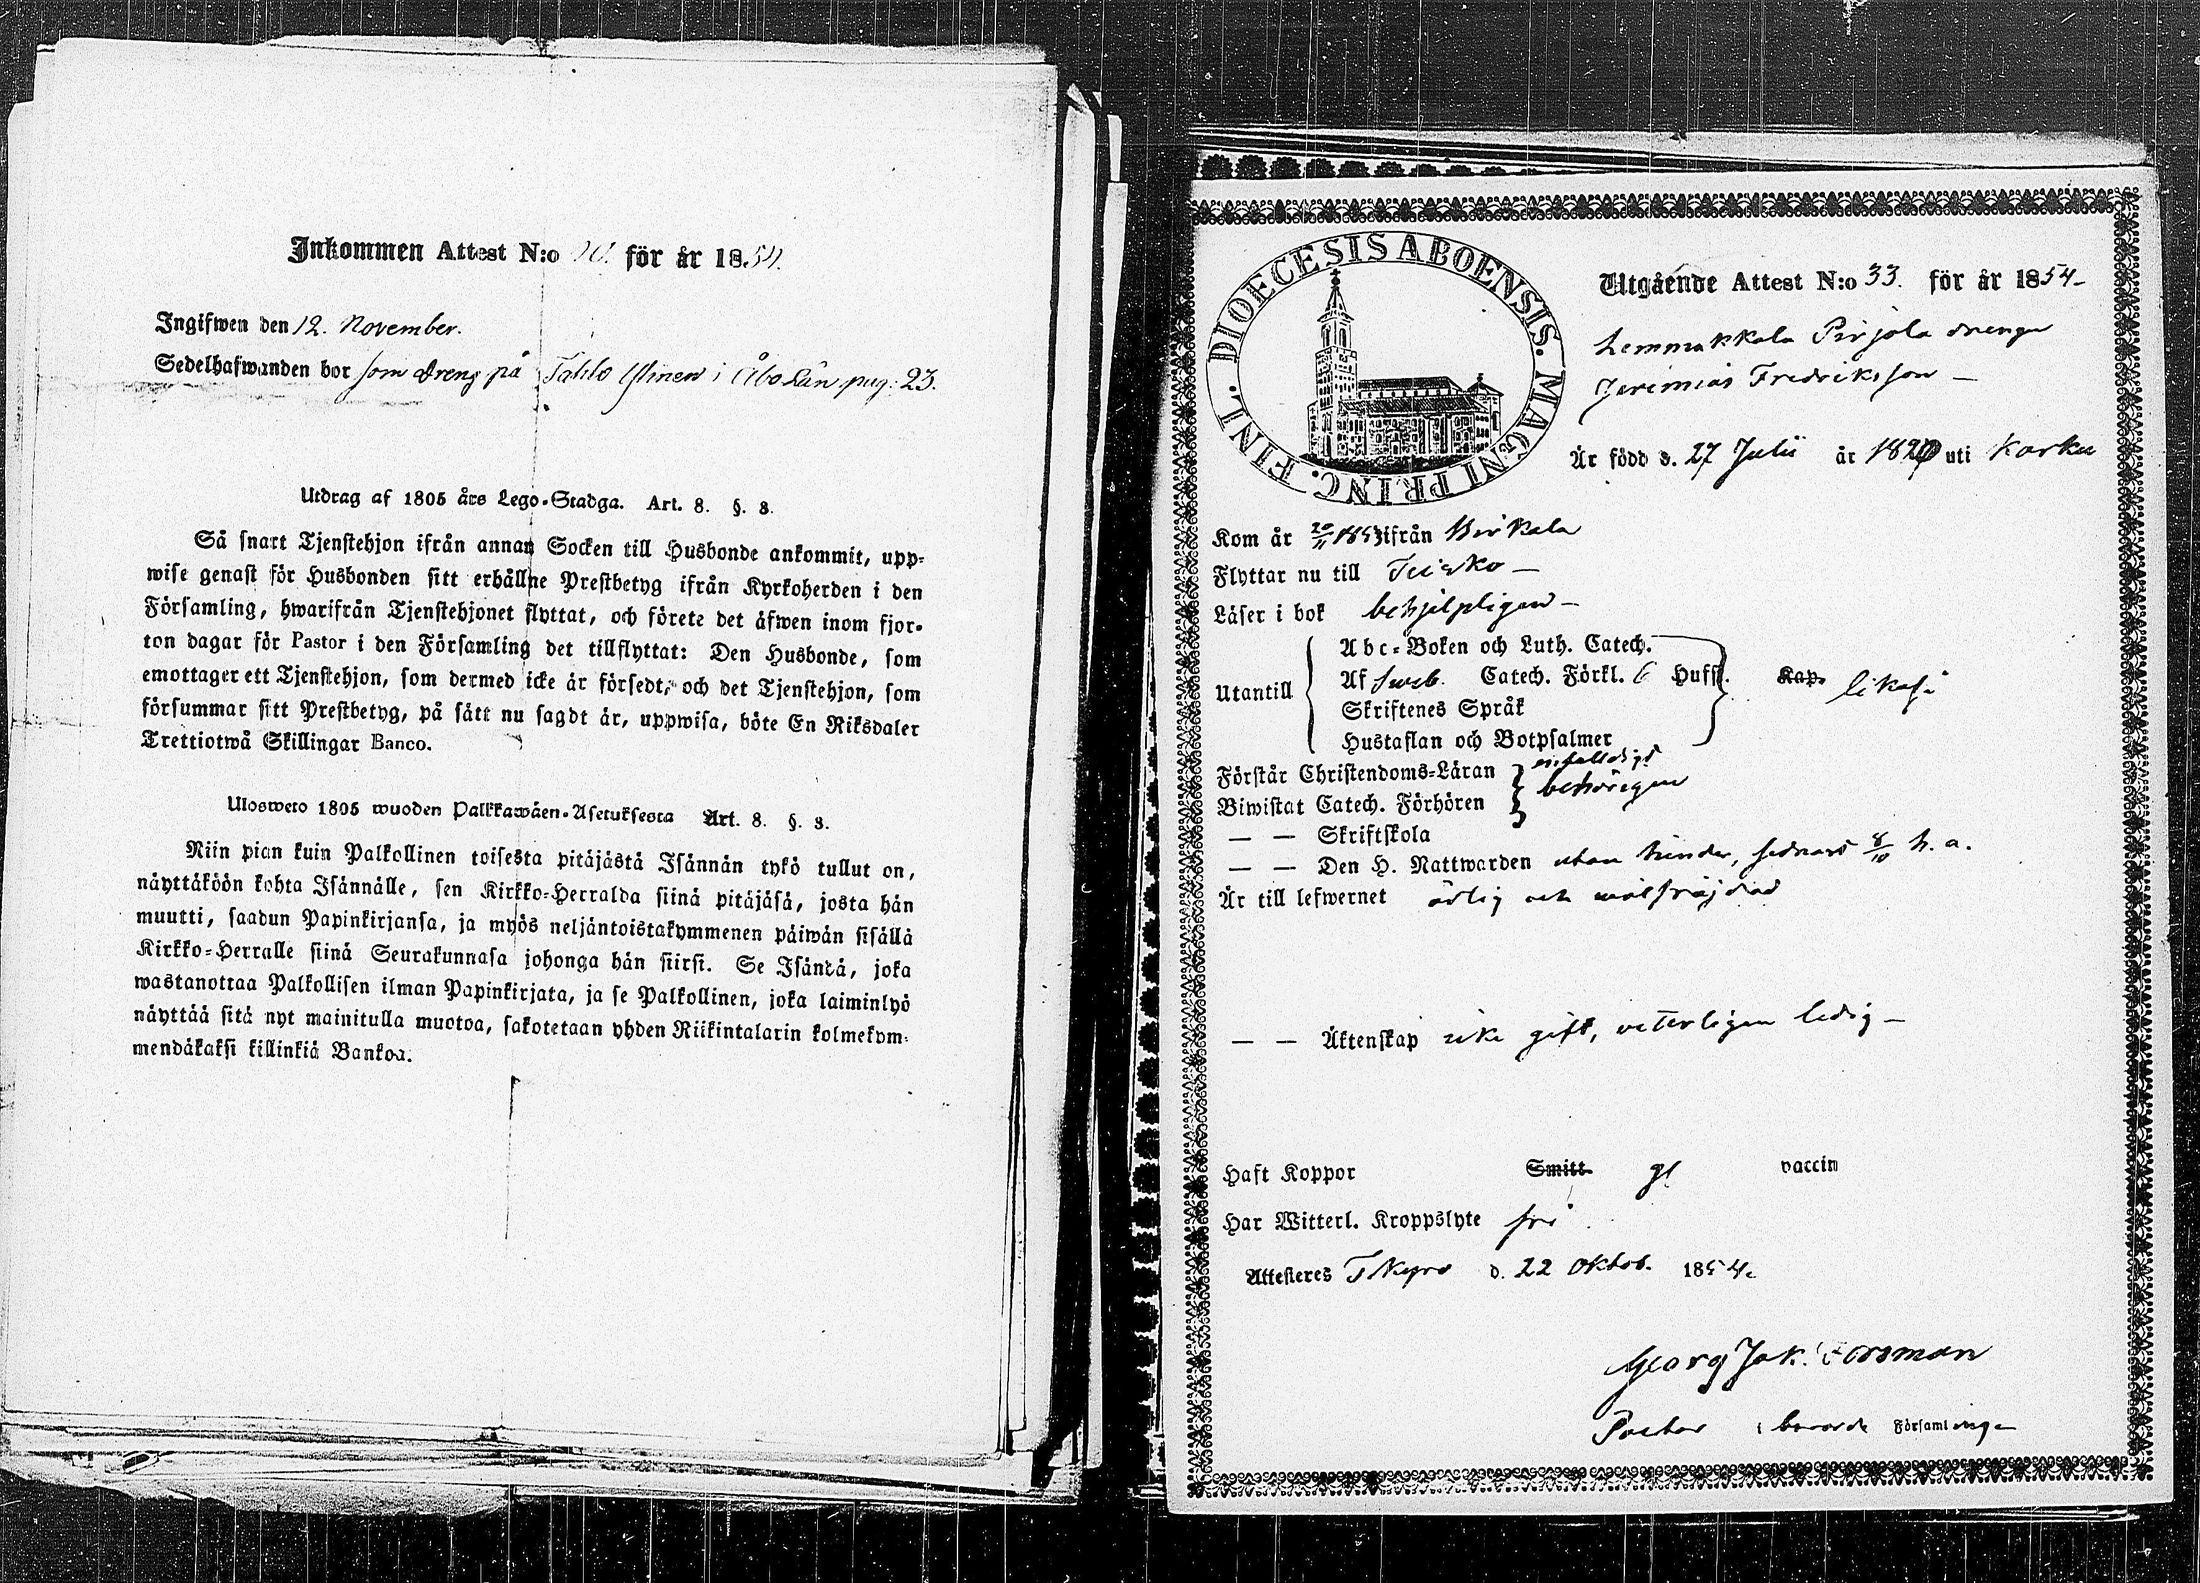 Inkommen Attest N:o för år 1854.
Ingifwen den 12. November.
Sedelhafwanden bor som dreng på i Åbo Län pag: 23.
Utdrag af 1805 års Lego-Stadga. Art. 8. §. 8.
Så snart Tjenstehjon ifrån annan Socken till Husbonde ankommit, upp-
wise genast för Husbonden sitt erhållne Prestbetyg ifrån Kyrkoherden i den
Församling, hwarifrån Tjenstehjonet flyttat, och förete det äfwen inom fjor-
ton dagar för Pastor i den Församling det tillflyttat: Den Husbonde, som
emottager ett Tjenstehjon, som dermed icke är försedt, och det Tjenstehjon, som
försummar sitt Prestbetyg, på sätt nu sagdt är, uppwisa, böte En Riksdaler
Trettiotwå Skillingar Banco.
Ulosweto 1805 wuoden Palkkawäen-Asetuksesta Art. 8. §. 8.
Niin pian kuin Palkollinen toisesta pitäjästä Isännän tykö tullut on,
näyttäköön kohta Isännälle, sen Kirkko-Herralda siinä pitäjäsä, josta hän
muutti, saadun Papinkirjansa, ja myös neljäntoistakymmenen päiwän sisällä
Kirkko-Herralle siinä Seurakunnasa johonga hän siirsi. Se Isändä, joka
wastanottaa Palkollisen ilman Papinkirjata, ja se Palkollinen, joka laiminlyö
näyttää sitä nyt mainitulla muotoa, sakotetaan yhden Riikintalarin kolmekym-
mendäkaksi killinkiä Bankoa.
DIOECESIS ABOENSIS. MAGNI PRINC. FINL.
Utgående Attest N:o 33. för år 1854-
Lemmakkala Pirjola drengen
Jeremias Fredriksson -
Är född d. 27 Julii år 1820 uti Karku
Kom år 20/11 1853 ifrån Birkala
Flyttar nu till Teisko -
Läser i bok behjelpligen -
Utantill
Abc-Boken och Luth. Catech.
Af Sweb. Catech. Förkl. 6 Hufst. Kap. likaså
Skriftenes Språk
Hustaflan och Botpsalmer
Förstår Christendoms-Läran enfaldigt
Biwistat Catech. Förhören behörigen
— — Skriftskola
— — Den H. Nattwarden utan hinder, sednast 8/10 h. a.
Är till lefwernet ärlig och wälfräjdad
— — Äktenskap icke gift, veterligen ledig -
Haft Koppor Smitt gl vaccin
Har Witterl. Kroppslyte fri
Attesteres T.Kyro d. 22 Oktob. 1854.
Georg Jak. Forsman
Pastor i berörde Församlinge -